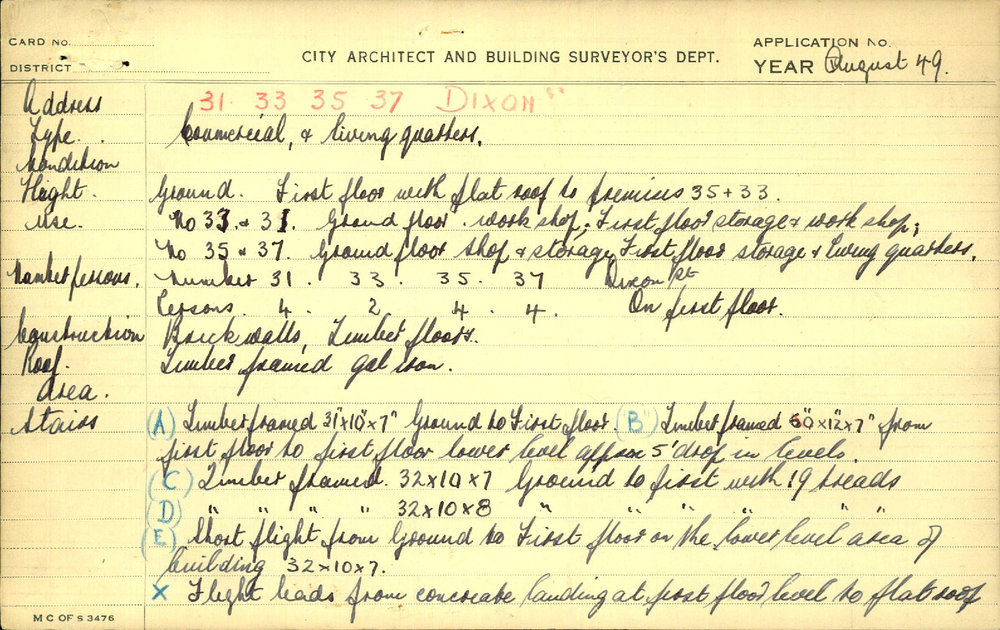 CARD NO.
CITY ARCHITECT AND BUILDING SURVEYOR'S DEPT.
APPLICATION NO.
DISTRICT
YEAR August 49.
Address 31 33 35 37 Dixon "
Type. Commercial, & living quarters.
Condition
Height. Ground. First floor with flat roof to premises 35 + 33.
Use. No 33 & 31. Ground floor. work shop; First floor storage & work shop;
No 35 & 37. Ground floor shop & storage, First floor storage & living quarters.
Number persons. Number 31. 33. 35. 37 Dixon St
Persons. 4. 2 4. 4. On first floor.
Construction Brick walls, Timber floors.
Roof. Timber framed gal iron.
Area.
Stairs (A) Timber framed 31"x10"x7" Ground to First floor. (B) Timber framed 60"x12"x7" from
first floor to first floor lower level approx 5' drop in levels.
(C) Timber framed. 32x10x7 Ground to first with 19 treads
(D) " " " " 32x10x8 " " " " "
(E) Short flight from Ground to First floor on the lower level area of
building 32x10x7.
x Flight leads from concreate landing at first floor level to flat roof
M C OF S 3476